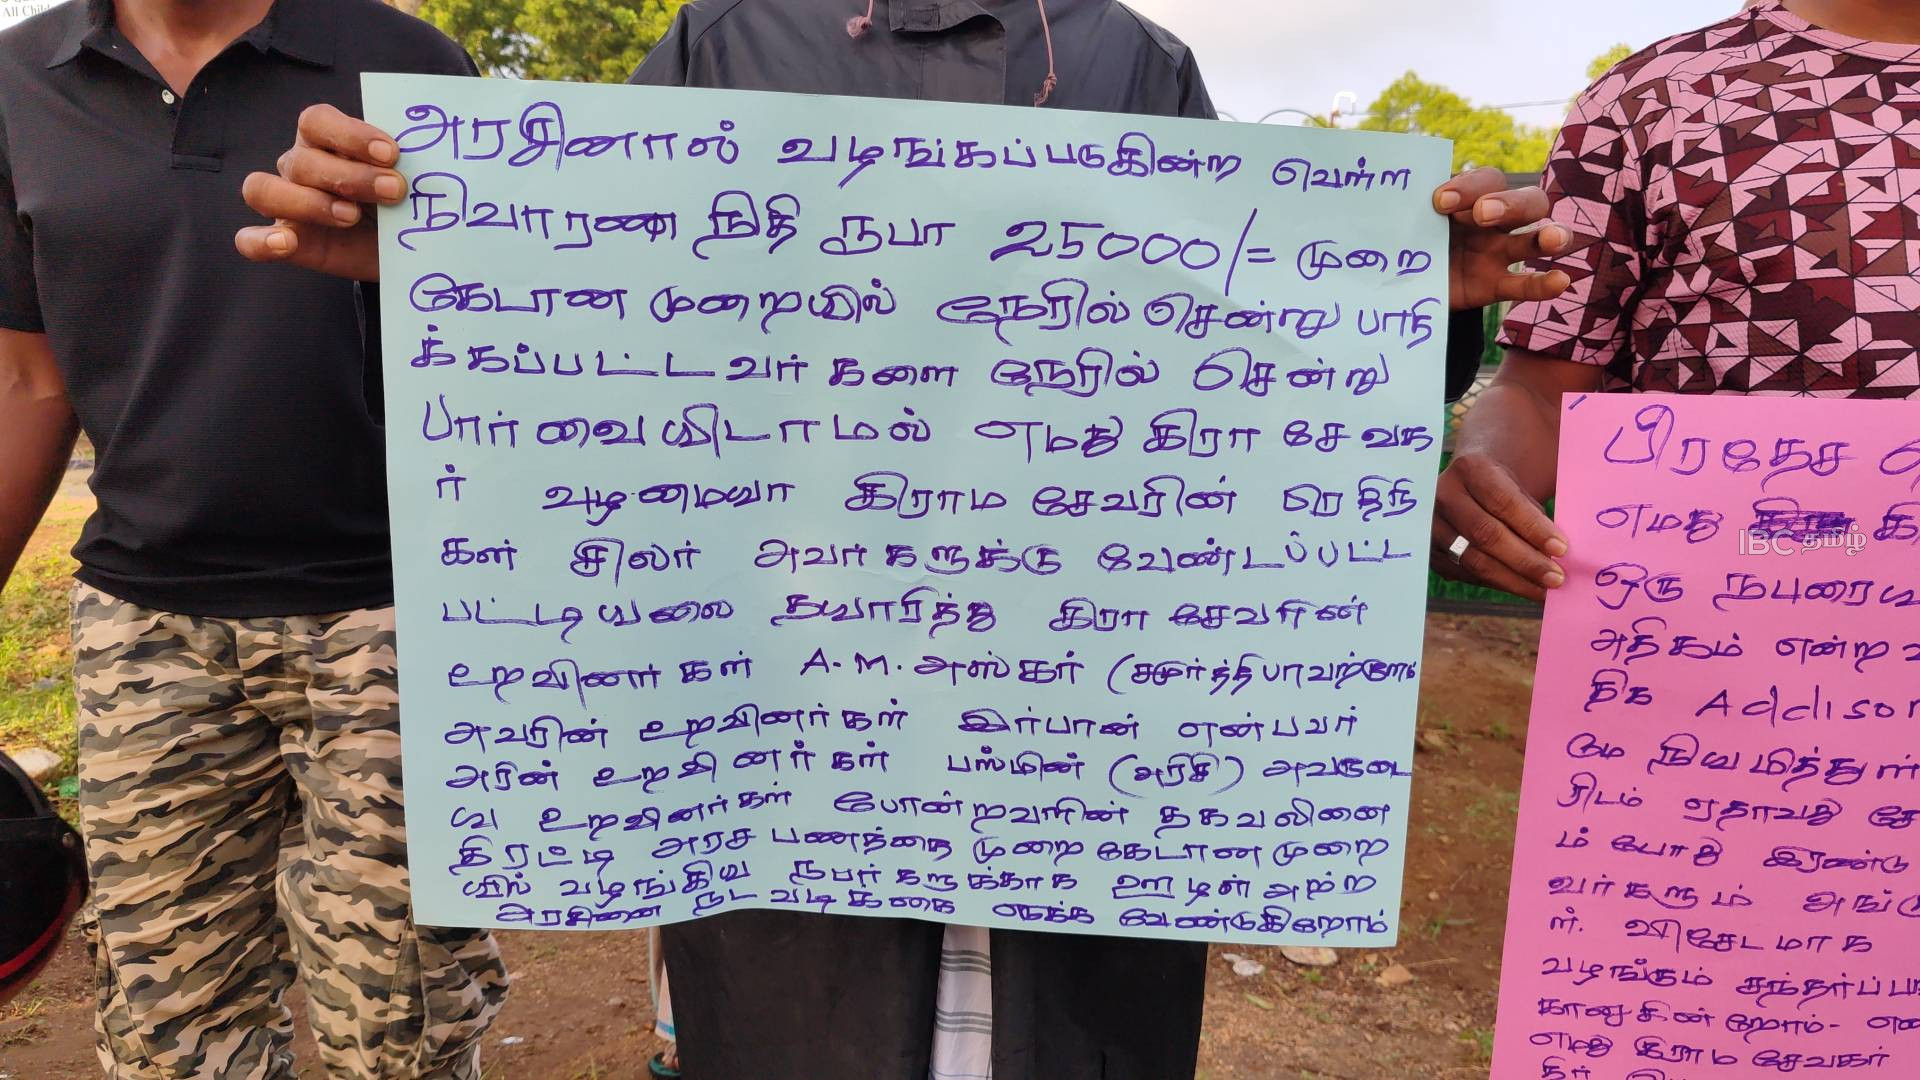 All Child
அரசினால் வழங்கப்படுகின்ற வெள்ள
நிவாரண நிதி ரூபா 25000/= முறை
கேடான முறையில் நேரில் சென்று பாதி
க்கப்பட்டவர்களை நேரில் சென்று
பார்வையிடாமல் எமது கிரா சேவக
ர் கிராம சேவரின்
கள் சிலர் அவர்களுக்கு வேண்டப்பட்ட
பட்டியலை தயாரித்து கிரா சேவரின்
உறவினர்கள் A.M. அஸ்கர்
அவரின் உறவினர்கள் இர்பான் என்பவர்
அரின் உறவினர்கள் பஸ்மின் (அரிசி) அவருடை
ய உறவினர்கள் போன்றவரின் தகவலினை
திரட்டி அரச பணத்தை முறைகேடான முறை
யில் வழங்கிய நபர்களுக்காக ஊழள் அற்ற
அரசினை நடவடிக்கை எடுக்க வேண்டுகிறோம்
பிரதேச
எமது
ஒரு நபரைய
அதிகம் என்ற
திக Addison
மே நியமித்துள்
ரிடம் ஏதாவது சே
ம் போது இரண்டு
வர்களும் அங்கு
ள். விசேடமாக
வழங்கும் சந்தர்ப்ப
காணுகின்றோம்-
எமது கிராம சேவகர்
IBC தமிழ்